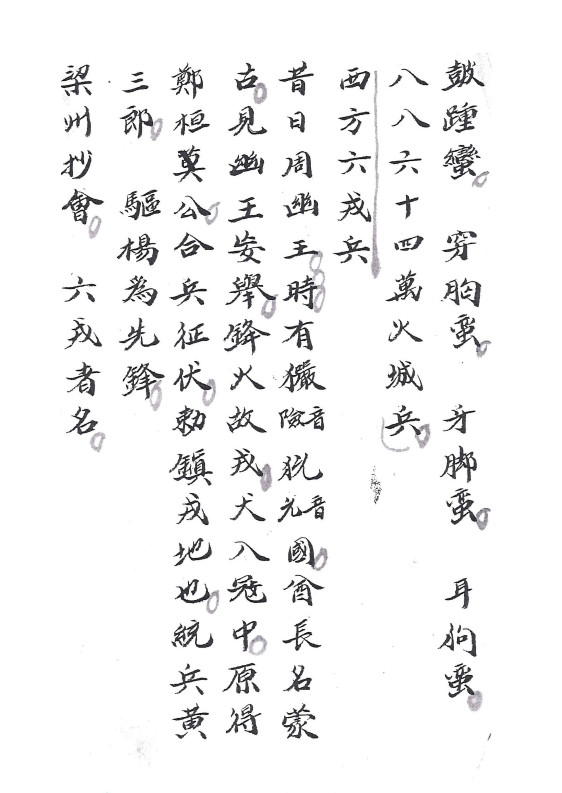 皷踵蠻 穿胸蛮 牙脚蛮 耳狗蛮
八八六十四萬火城兵
西方六戎兵
昔日周幽王時有玁音險狁音允國酋長名蒙
古見幽王妄舉鋒火故戎犬入冦中原得
鄭桓莫公合兵征伏勅鎮戎地也統兵黄
三郎 驅楊為先鋒
梁州抄會 六戎者名